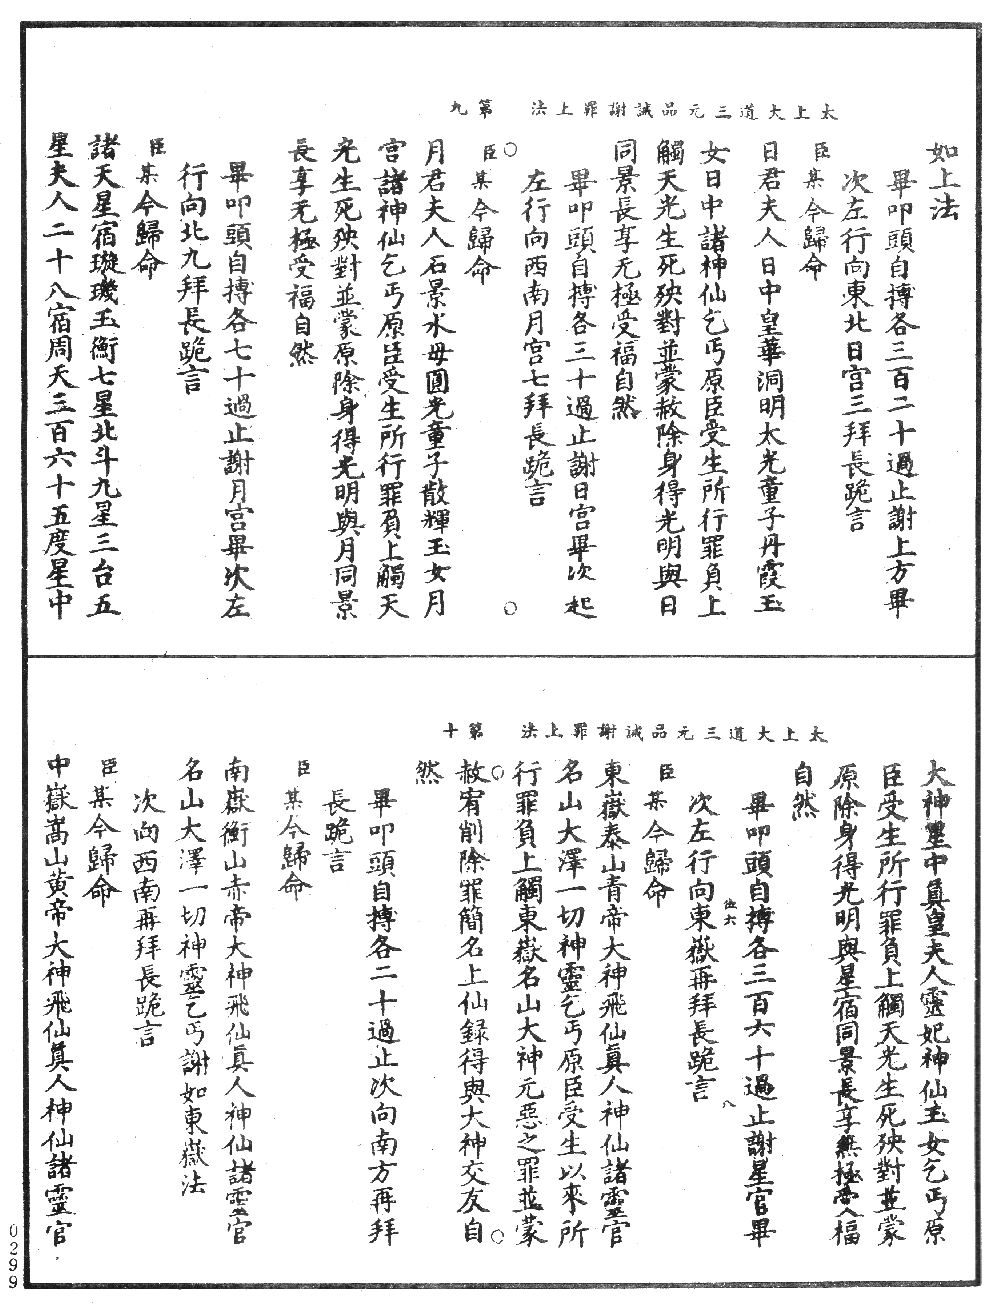 太上大道三元品誡謝罪上法　第九
如上法
畢叩頭自摶各三百二十過止謝上方畢
次左行向東北日宮三拜長跪言
臣某今歸命
日君夫人日中皇華洞明太光童子丹霞玉
女日中諸神仙乞丐原臣受生所行罪負上
觸天光生死殃對並蒙赦除身得光明與日
同景長享无極受福自然
畢叩頭自摶各三十過止謝日宮畢次起
左行向西南月宮七拜長跪言
臣某今歸命
月君夫人石景水母圓光童子散輝玉女月
宮諸神仙乞丐原臣受生所行罪負上觸天
光生死殃對並蒙原除身得光明與月同景
長享无極受福自然
畢叩頭自摶各七十過止謝月宮畢次左
行向北九拜長跪言
臣某今歸命
諸天星宿璇璣玉衡七星北斗九星三台五
星夫人二十八宿周天三百六十五度星中
太上大道三元品誡謝罪上法　第十
大神星中真皇夫人靈妃神仙玉女乞丐原
臣受生所行罪負上觸天光生死殃對並蒙
原除身得光明與星宿同景長享無極受福
自然
畢叩頭自摶各三百六十過止謝星官畢
次左行向東嶽再拜長跪言
伍六
八
臣某今歸命
東嶽泰山青帝大神飛仙真人神仙諸靈官
名山大澤一切神靈乞丐原臣受生以來所
行罪負上觸東嶽名山大神元惡之罪並蒙
赦宥削除罪簡名上仙録得與大神交友自
然
畢叩頭自摶各二十過止次向南方再拜
長跪言
臣某今歸命
南嶽衡山赤帝大神飛仙真人神仙諸靈官
名山大澤一切神靈乞丐謝如東嶽法
次向西南再拜長跪言
臣某今歸命
中嶽嵩山黃帝大神飛仙真人神仙諸靈官
0299